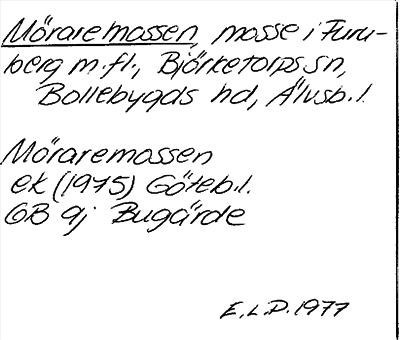 Möraremossen, mosse i Furu-
berg m.fl., Björketorps sn,
Bollebygds hd, Älvsb. l.
Möraremossen
ek (1975) Göteb.l.
GB 9j Bugärde
E.L.P. 1977